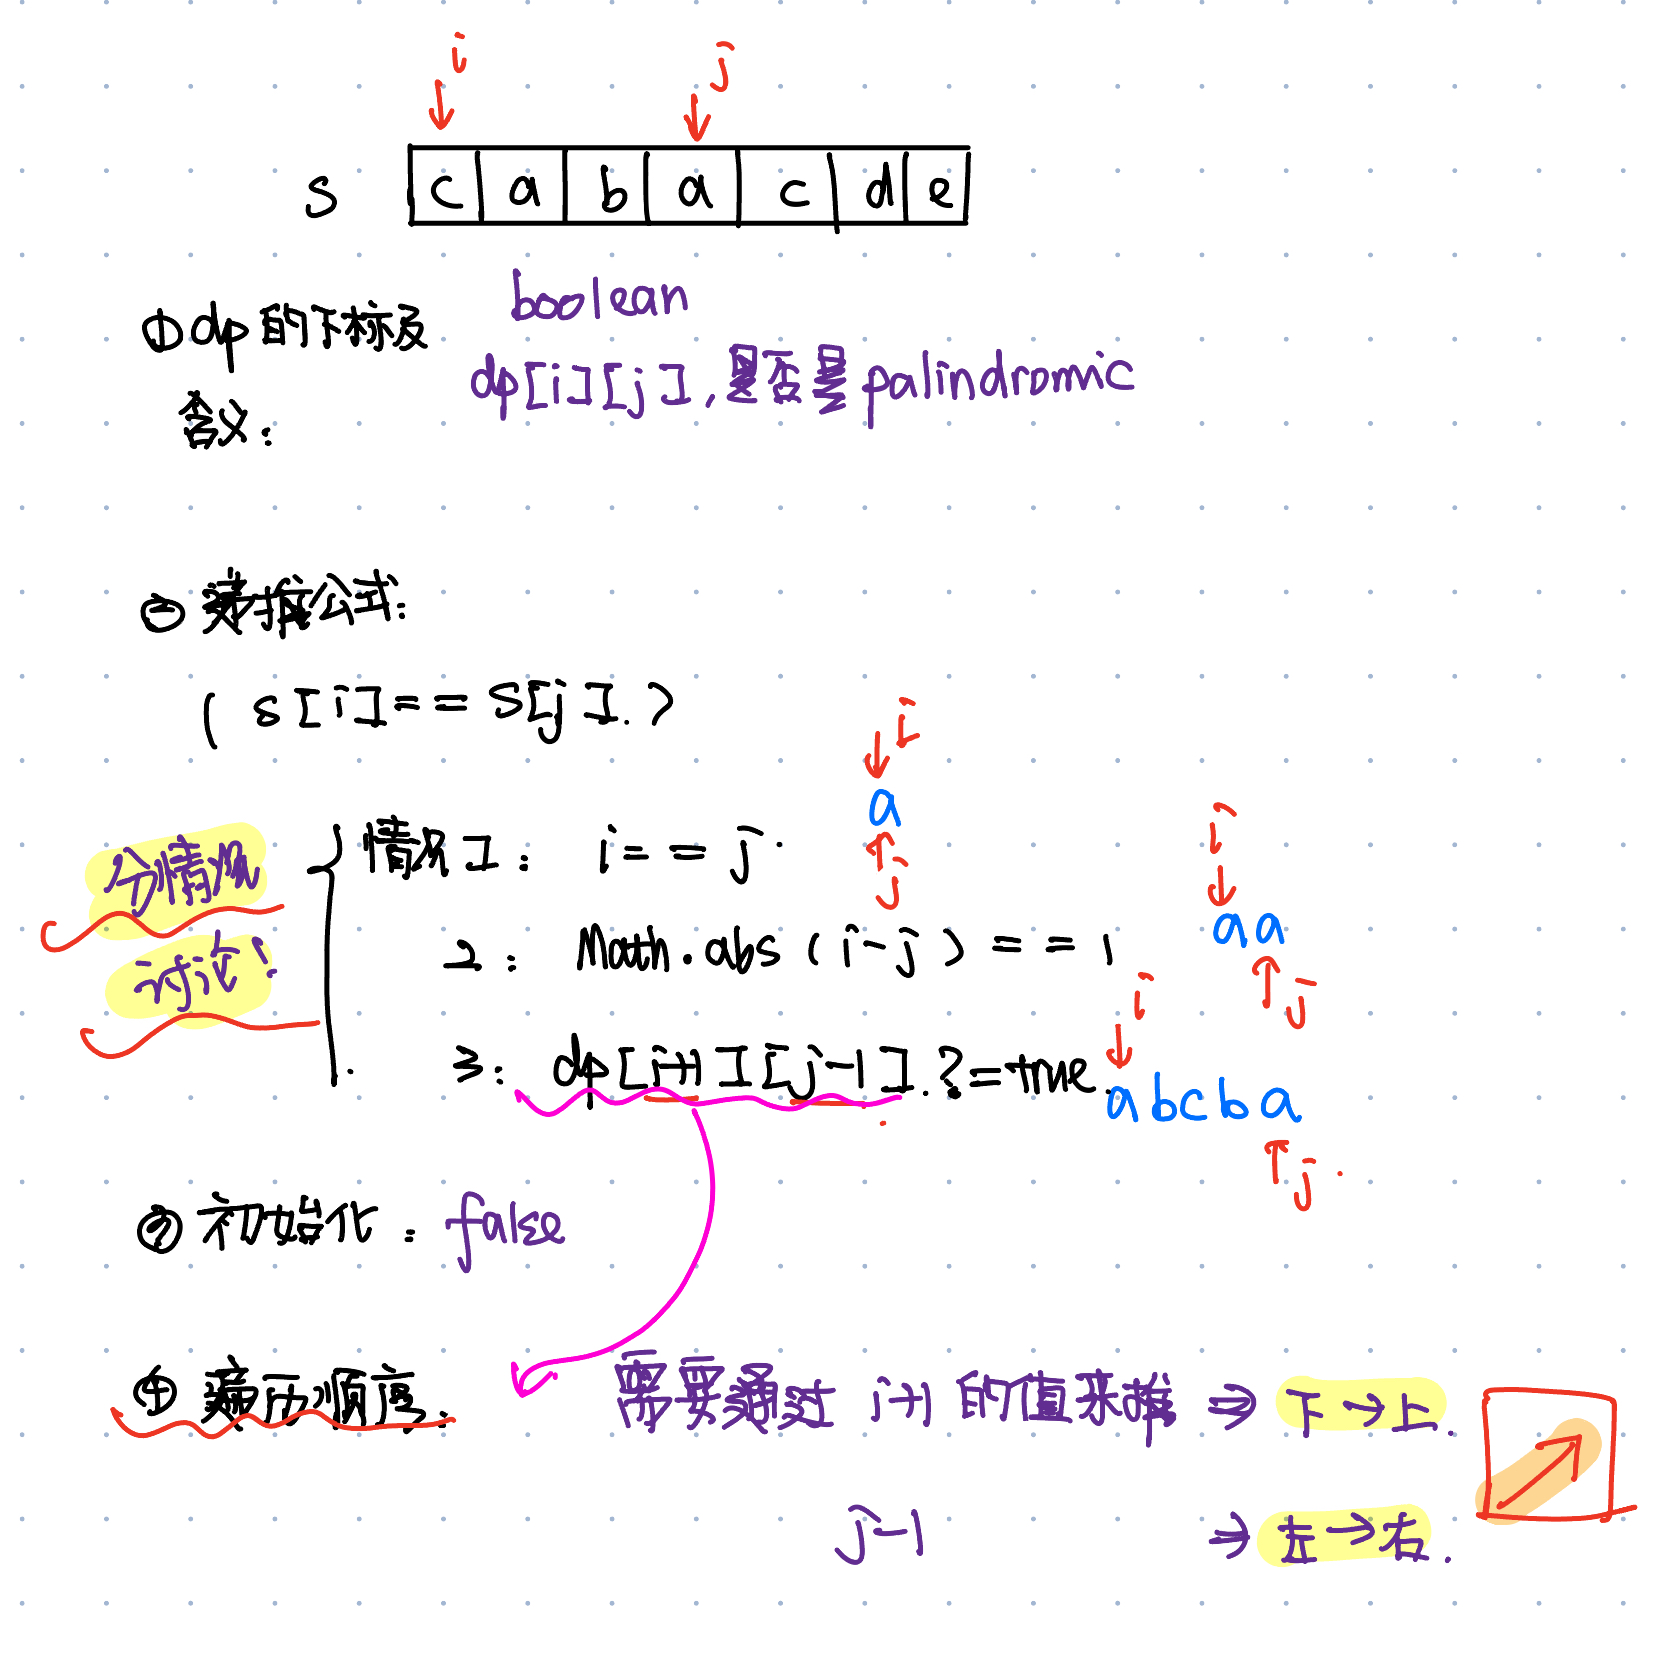 i j
s c a b a c d e
①dp的下标及
含义:
boolean
dp[i][j],是否是palindromic
② 递推公式:
( s[i]== s[j]. )
分情况
讨论!
情况1: i==j.
i
a
j
2: Math.abs(i-j)==1
i
aa
j
3: dp[i+1][j-1].?=true.
i
abcba
j.
③ 初始化: false
④ 遍历顺序.
需要通过 i+1 的值来推 ⇒ 下→上.
j-1 ⇒ 左→右.